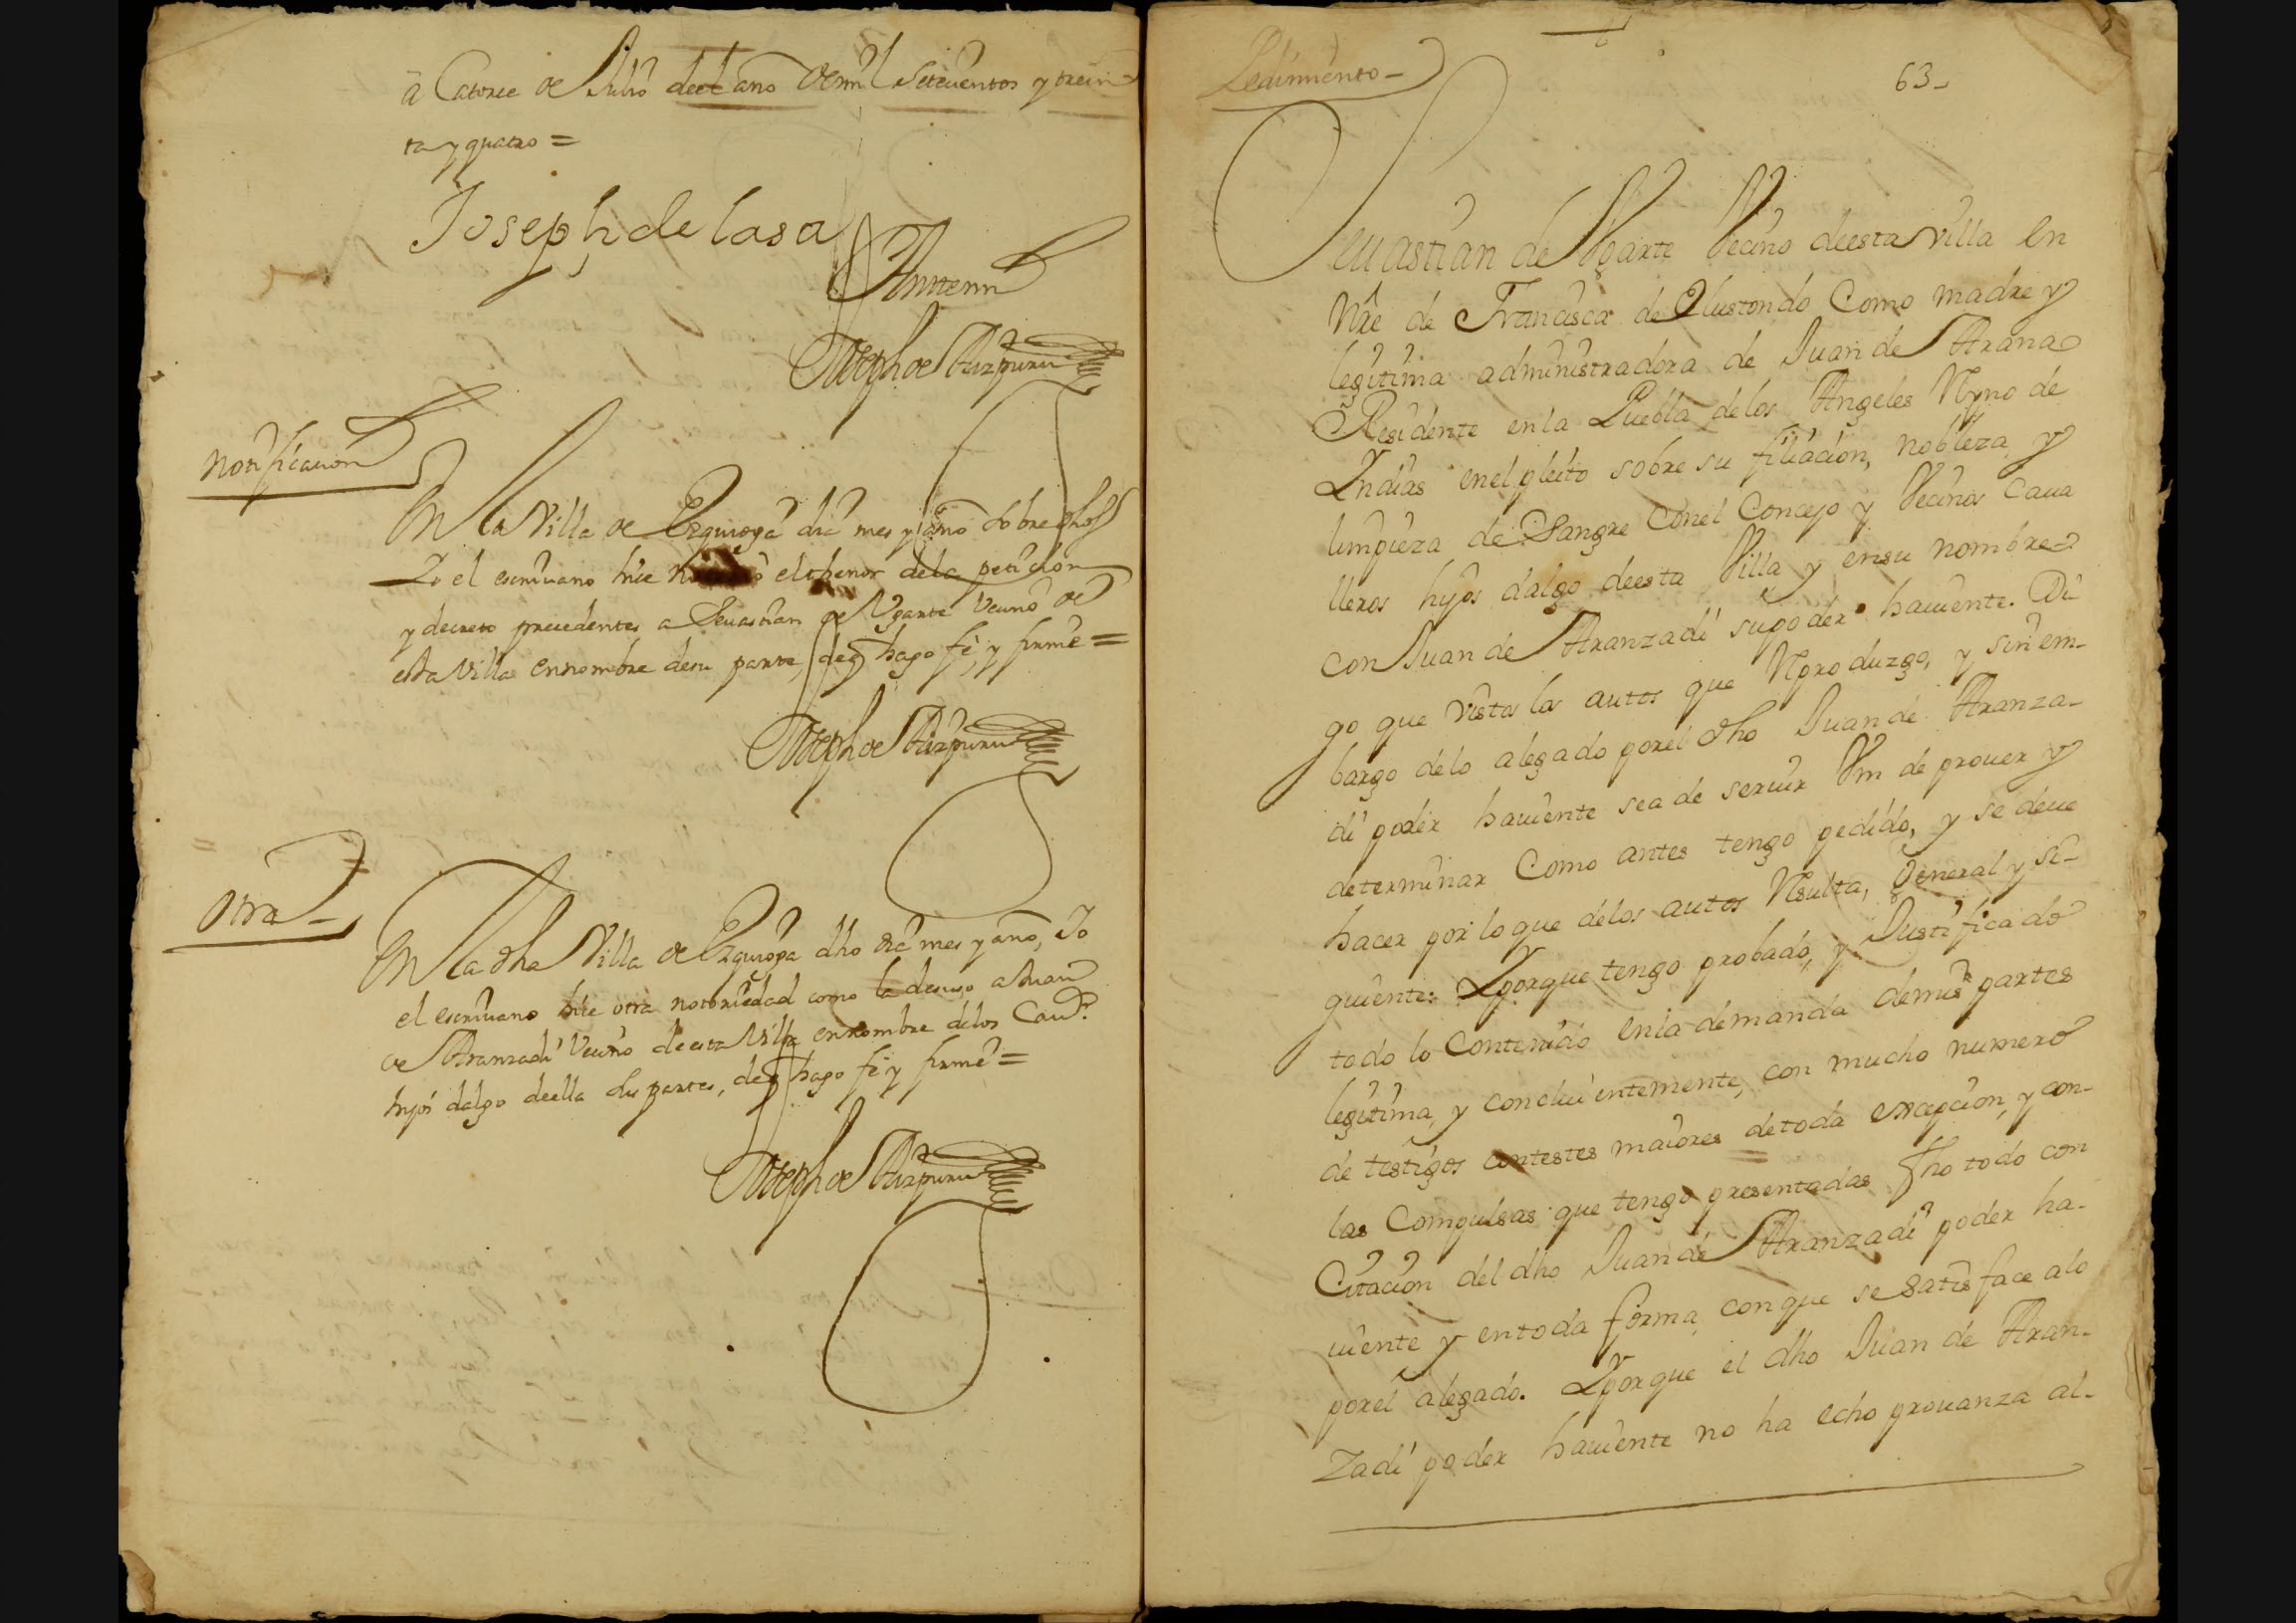 à Catorce de Julio de el año de mil setecientos y trein
ta y quatro =
Joseph de lasa
Anttemi
Joseph de Aizpuru
Notificacion
En la Villa de Ezquioga dia mes y año sobre dhos
Yo el escriuano hice notorio el thenor de la peticion
y decreto precedentes a Seuastian de Vgarte vecino de
esta Villa en nombre de su parte, de q hago fe, y firmè =
Joseph de Aizpuru
Otra
En la dha Villa de Ezquioga dho dia mes y año, Yo
el escriuano hice otra notoriedad como la de suso a Juan
de Aranzadi Vecino de esta Villa en nombre de los Cau.os
hijos dalgo de ella sus partes, de q hago fe y firmè =
Joseph de Aizpuru
Pedimiento
63
Seuastian de Vgarte Vecino de esta Villa en
Nre de Francisca de Olustondo Como madre y
legitima administradora de Juan de Arana
Residente en la Puebla de los Angeles Ryno de
Yndias en el pleito sobre su filiacion, nobleza, y
limpieza de Sangre con el Concejo y Vecinos Caua
lleros hijos dalgo de esta Villa y en su nombre
con Juan de Aranzadi su poder hauiente. Di
go que vistos los autos que Reproduzgo, y sin em-
bargo de lo alegado por el dho Juan de Aranza-
di poder hauiente sea de seruir Vm de prouer y
determinar Como antes tengo pedido, y se deue
hacer por lo que de los autos Resulta, general y si-
guiente: Y porque tengo probado, y Justificado
todo lo Contenido en la demanda de mis partes
legitima, y concluientemente, con mucho numero
de testigos contestes maiores de toda excepcion, y con-
las Compulsas que tengo presentadas fho todo con
Citacion del dho Juan de Aranzadi poder ha-
uiente y en toda forma, con que se satisface alo
por el alegado. Y porque el dho Juan de Aran-
zadi poder hauiente no ha echo prouanza al-